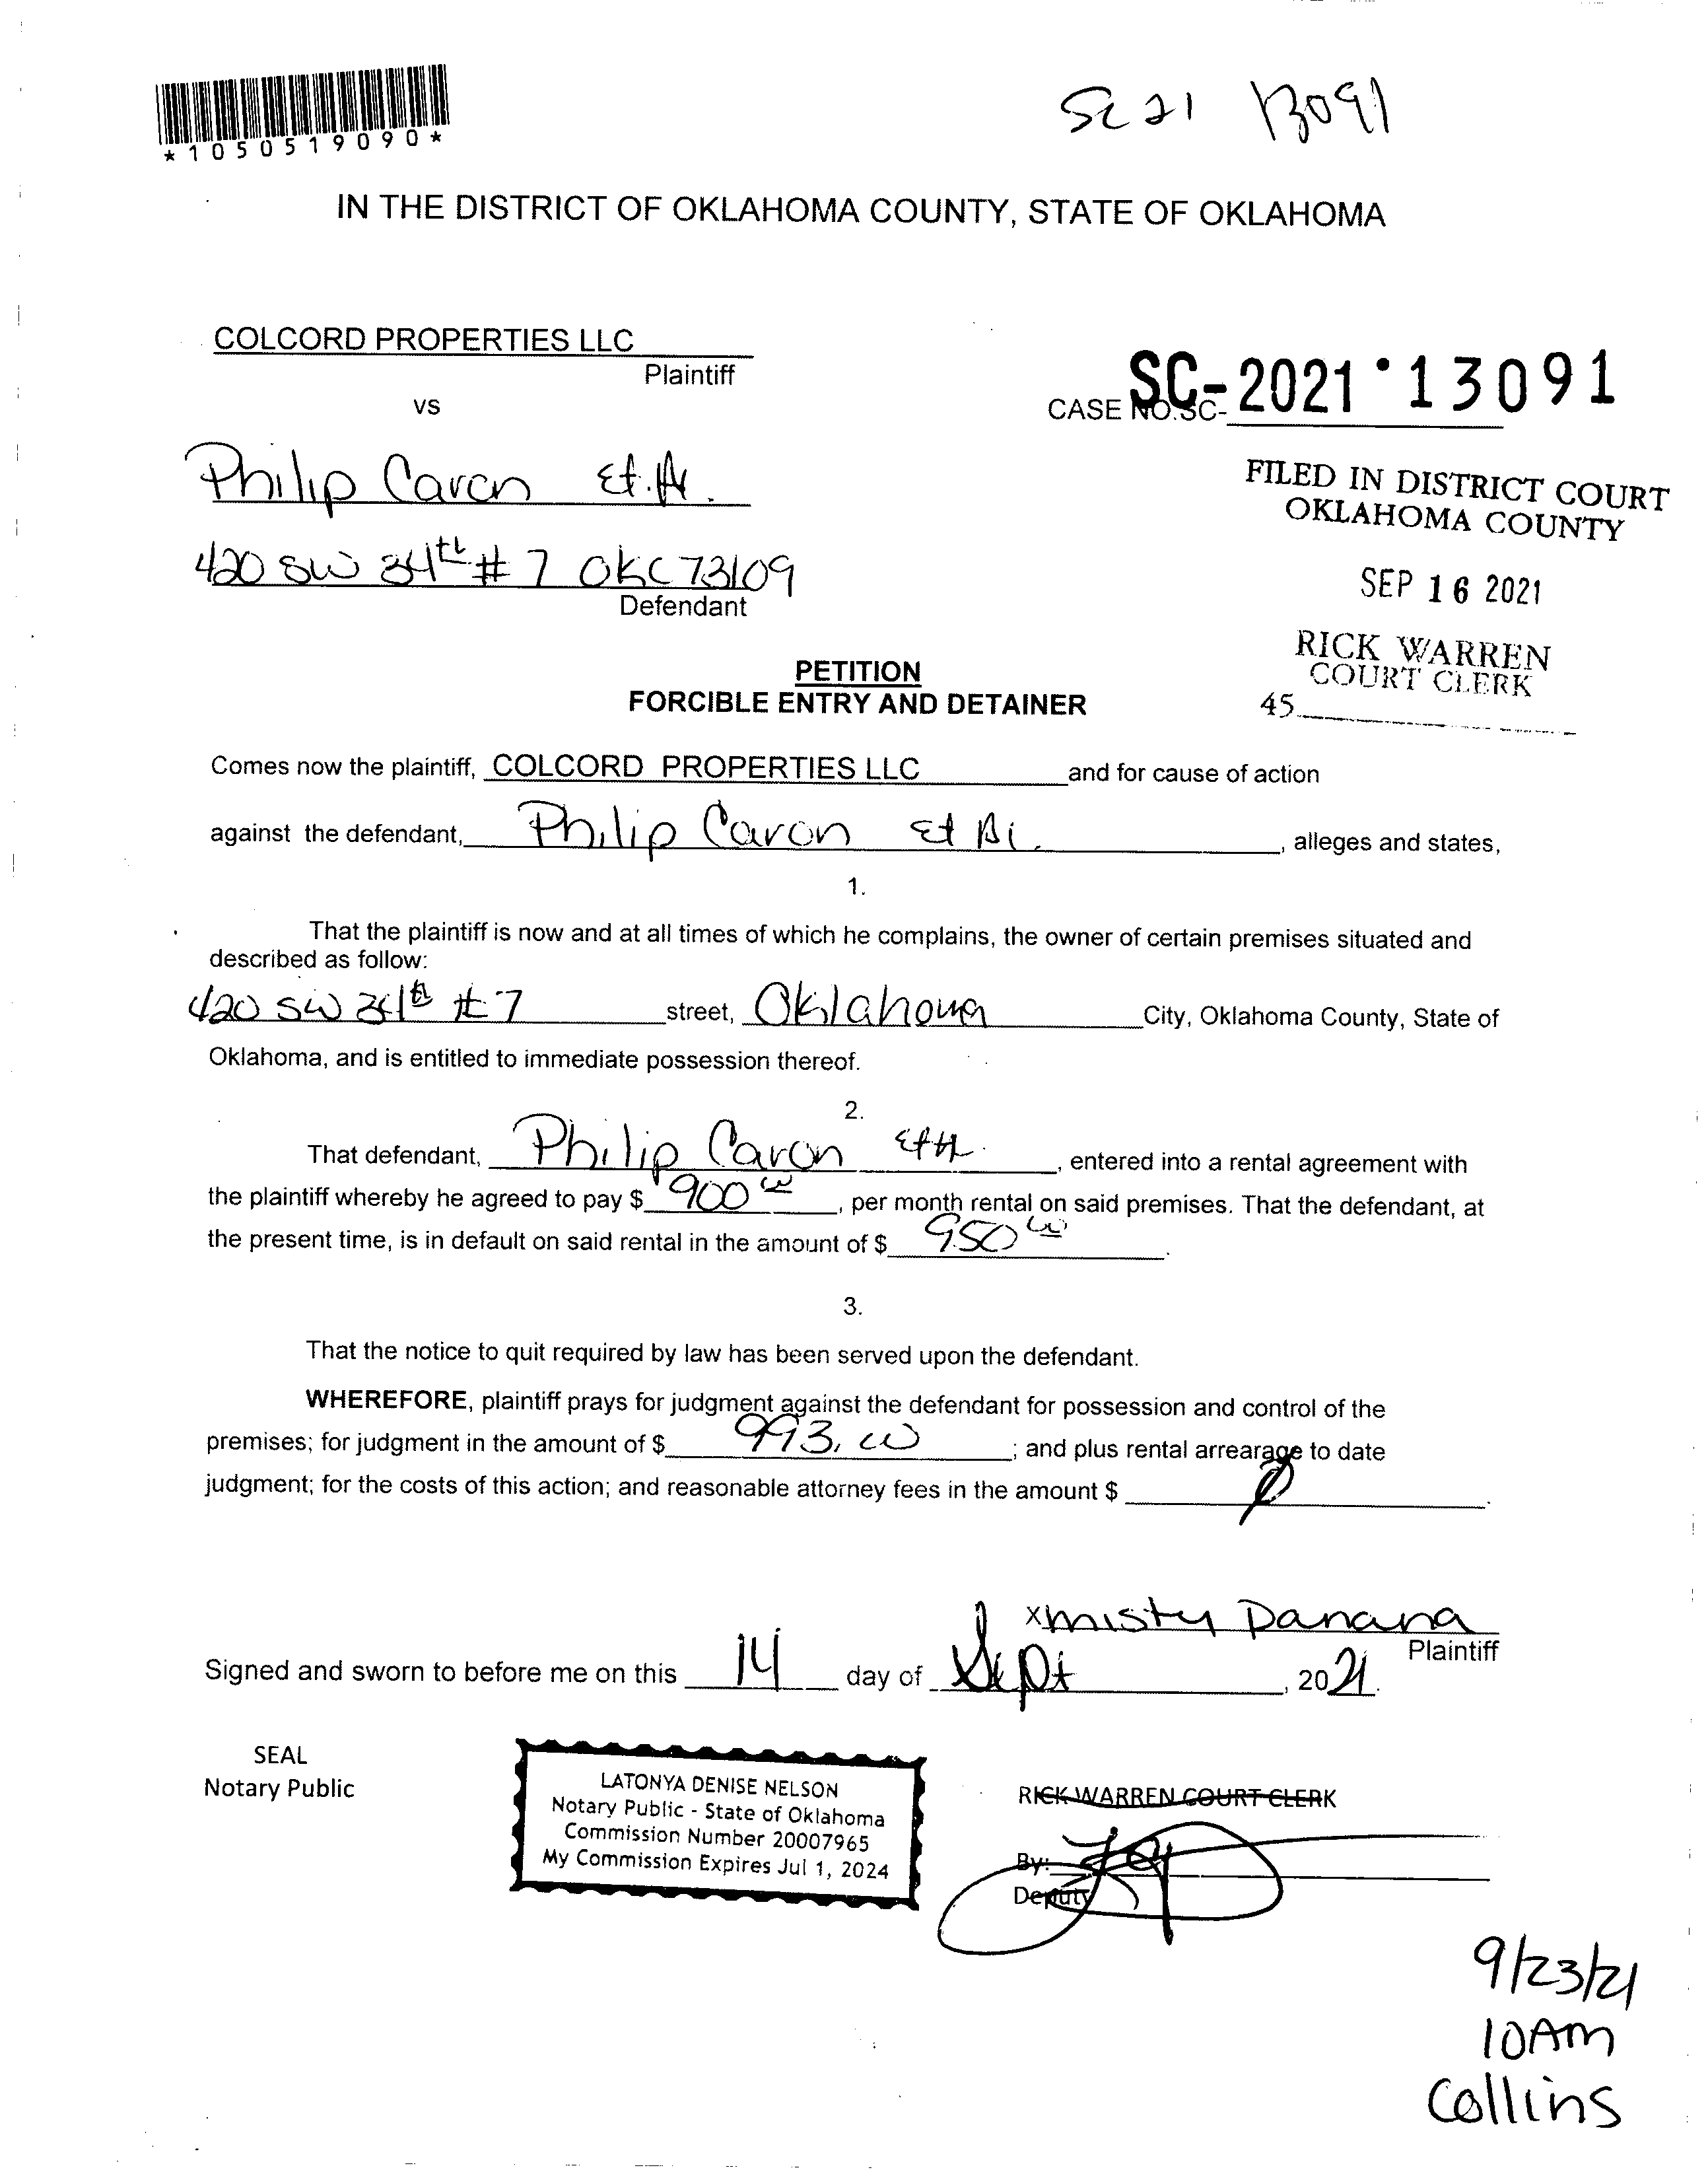 *1050519090*
SC 21 13091
IN THE DISTRICT OF OKLAHOMA COUNTY, STATE OF OKLAHOMA
COLCORD PROPERTIES LLC
Plaintiff
vs
CASE NO.SC-
SC-2021 • 13091
Philip Caron Et. Al.
420 SW 34th # 7 OKC 73109
Defendant
FILED IN DISTRICT COURT
OKLAHOMA COUNTY
SEP 16 2021
RICK WARREN
COURT CLERK
45
PETITION
FORCIBLE ENTRY AND DETAINER
Comes now the plaintiff, COLCORD PROPERTIES LLC and for cause of action
against the defendant, Philip Caron Et Al. , alleges and states,
1.
That the plaintiff is now and at all times of which he complains, the owner of certain premises situated and
described as follow:
420 SW 34th # 7 street, Oklahoma City, Oklahoma County, State of
Oklahoma, and is entitled to immediate possession thereof.
2.
That defendant, Philip Caron , entered into a rental agreement with
the plaintiff whereby he agreed to pay $ 900 00 , per month rental on said premises. That the defendant, at
the present time, is in default on said rental in the amount of $ 950 00 .
3.
That the notice to quit required by law has been served upon the defendant.
WHEREFORE, plaintiff prays for judgment against the defendant for possession and control of the
premises; for judgment in the amount of $ 993. 00 ; and plus rental arrearage to date
judgment; for the costs of this action; and reasonable attorney fees in the amount $ .
x misty Danana
Plaintiff
Signed and sworn to before me on this 14 day of Sept , 2021.
SEAL
Notary Public
LATONYA DENISE NELSON
Notary Public - State of Oklahoma
Commission Number 20007965
My Commission Expires Jul 1, 2024
RICK WARREN COURT CLERK
By:
Deputy
9/23/21
10AM
Collins